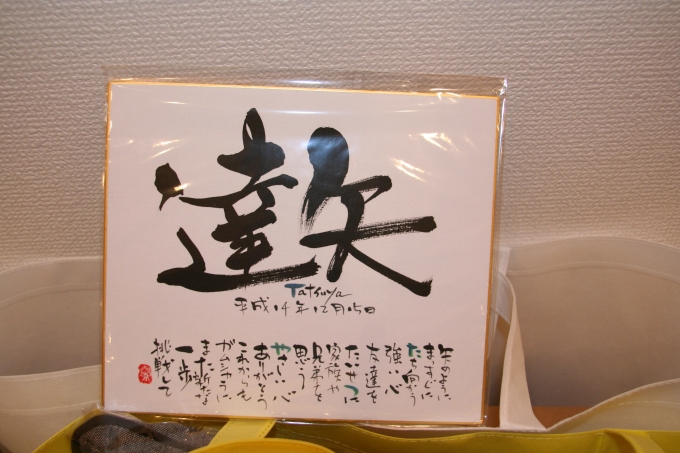 達矢
Tatsuya
平成14年12月15日
矢のように
まっすぐに
たち向かう
強い心
友達を
たいせつに
家族や
兄弟を
思う
やさしい心
ありがとう
これからも
ガムシャラに
また新たな
一歩
挑戦して